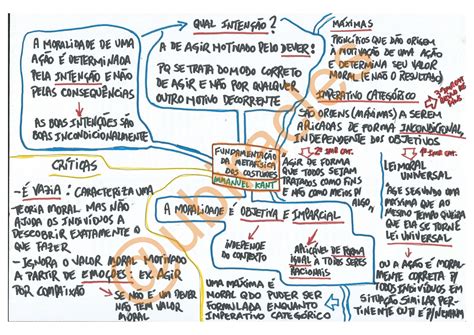 A MORALIDADE DE UMA
AÇÃO É DETERMINADA
PELA INTENÇÃO E NÃO
PELAS CONSEQUÊNCIAS
AS BOAS INTENÇÕES SÃO
BOAS INCONDICIONALMENTE
QUAL INTENÇÃO?
A DE AGIR MOTIVADO PELO DEVER!
PQ SE TRATA DO MODO CORRETO
DE AGIR E NÃO POR QUALQUER
OUTRO MOTIVO DECORRENTE
MÁXIMAS
PRINCÍPIOS QUE DÃO ORIGEM
À MOTIVAÇÃO DE UMA AÇÃO
E DETERMINA SEU VALOR
MORAL (E NÃO O RESULTADO)
IMPERATIVO CATEGÓRICO
SÃO ORDENS (MÁXIMAS) A SEREM
APLICADAS DE FORMA INCONDICIONAL
INDEPENDENTE DOS OBJETIVOS
FUNDAMENTAÇÃO
DA METAFÍSICA
DOS COSTUMES
IMMANUEL KANT
AGIR DE FORMA
QUE TODOS SEJAM
TRATADOS COMO FINS
E NÃO COMO MEIOS P/
ALGO
LEI MORAL
UNIVERSAL
AGE SEGUNDO UMA
MÁXIMA QUE AO
MESMO TEMPO QUEIRA
QUE ELA SE TORNE
LEI UNIVERSAL
OU A AÇÃO É MORAL
MENTE CORRETA P/
TODOS INDIVÍDUOS EM
SITUAÇÃO SIMILAR PER-
TINENTE OU É P/NENHUM
CRÍTICAS
- É VAZIA: CARACTERIZA UMA
TEORIA MORAL MAS NÃO
AJUDA OS INDIVÍDUOS A
DESCOBRIR EXATAMENTE O
QUE FAZER
- IGNORA O VALOR MORAL MOTIVADO
A PARTIR DE EMOÇÕES. EX. AGIR
POR COMPAIXÃO
SE NÃO É UM DEVER
NÃO TEM VALOR
MORAL
A MORALIDADE É OBJETIVA E IMPARCIAL
INDEPENDE
DO CONTEXTO
APLICÁVEL DE FORMA
IGUAL À TODOS SERES
RACIONAIS
UMA MÁXIMA É
MORAL QDO PUDER SER
FORMULADA ENQUANTO
IMPERATIVO CATEGÓRICO